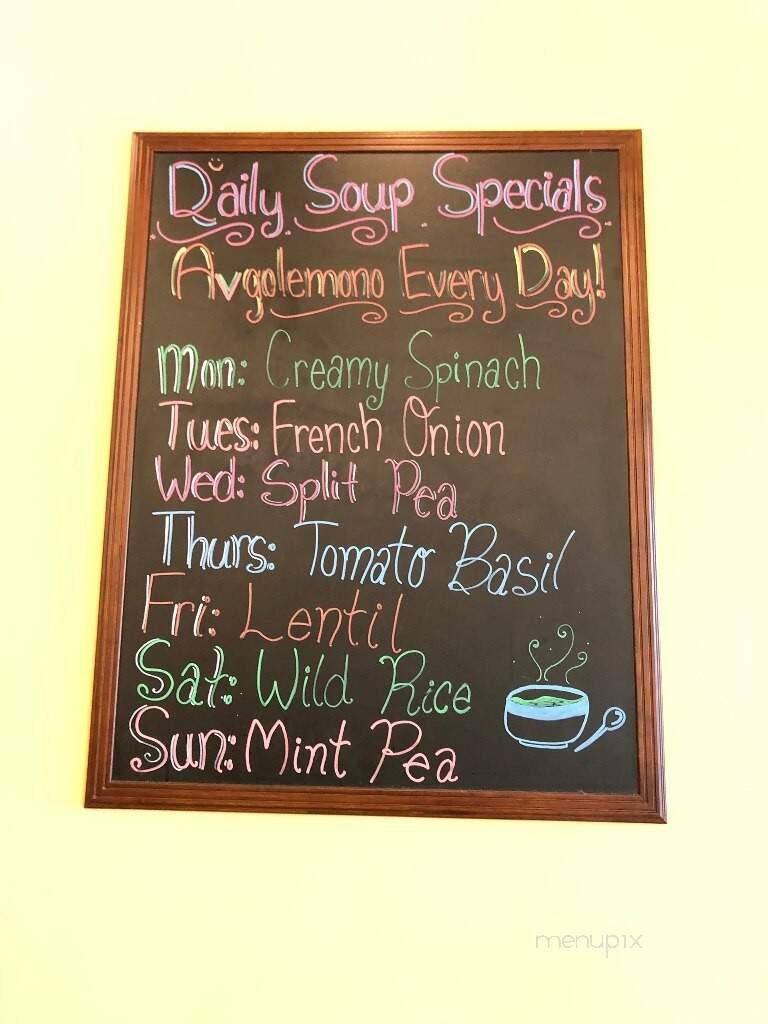 Daily Soup Specials
Avgolemono Every Day!
Mon: Creamy Spinach
Tues: French Onion
Wed: Split Pea
Thurs: Tomato Basil
Fri: Lentil
Sat: Wild Rice
Sun: Mint Pea
menupix